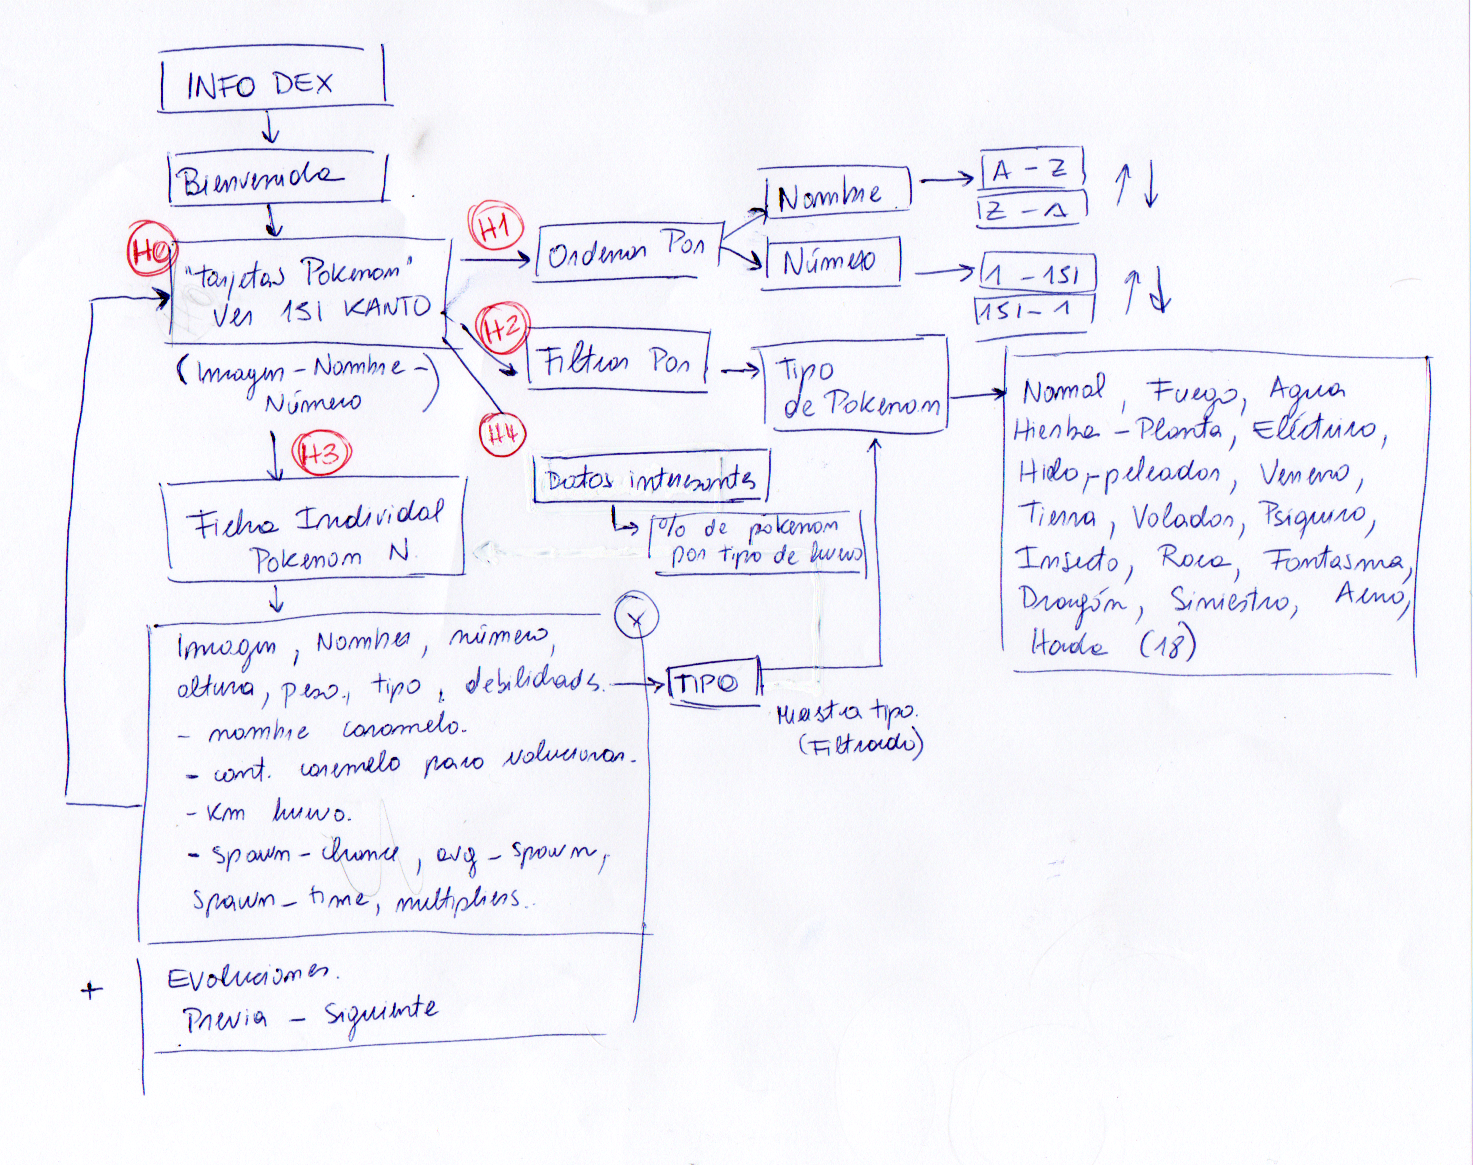 INFO DEX
Bienvenida
H0
"tarjetas Pokemon"
Ver 151 KANTO
(Imagen - Nombre -
Número)
H1
Ordenar Por
Nombre
A - Z
Z - A
Número
1 - 151
151 - 1
H2
Filtrar Por
Tipo
de Pokemon
Normal, Fuego, Agua
Hierba - Planta, Eléctrico,
Hielo, peleador, Veneno,
Tierra, Volador, Psiquico,
Insecto, Roca, Fantasma,
Dragón, Siniestro, Acero,
Hada (18)
H4
Datos interesantes
% de pokemon
por tipo de huevo
H3
Ficha Individal
Pokemon N.
X
Imagen, Nombre, número,
altura, peso, tipo, debilidads.
- nombre caramelo.
- cant. caramelo para volucionar.
- Km huevo.
- spawn-chance, avg-spawn,
spawn-time, multipliers..
TIPO
Muestra tipo.
(Filtrado)
+
Evoluciones.
Previa - Siguiente